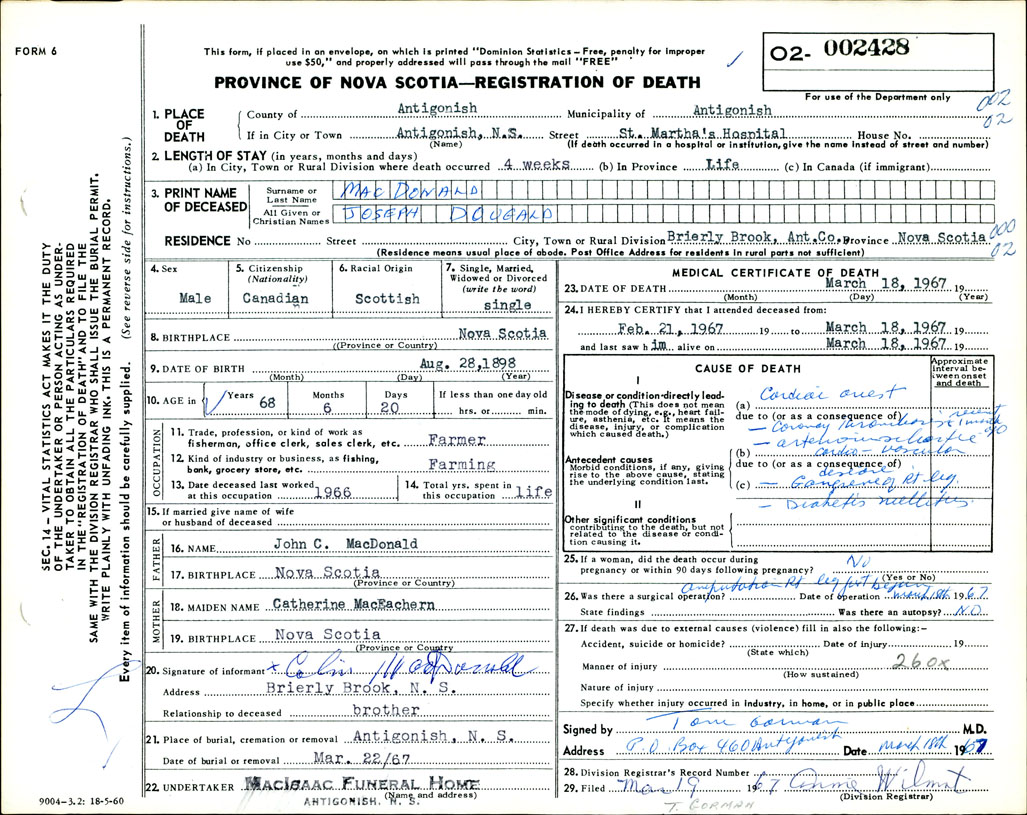 FORM 6
This form, if placed in an envelope, on which is printed "Dominion Statistics – Free, penalty for improper
use $50," and properly addressed will pass through the mail "FREE"
PROVINCE OF NOVA SCOTIA—REGISTRATION OF DEATH
02- 002428
For use of the Department only
002
02
SEC. 14 – VITAL STATISTICS ACT MAKES IT THE DUTY
OF THE UNDERTAKER OR PERSON ACTING AS UNDER-
TAKER TO OBTAIN ALL THE PARTICULARS REQUIRED
IN THE "REGISTRATION OF DEATH" AND TO FILE THE
SAME WITH THE DIVISION REGISTRAR WHO SHALL ISSUE THE BURIAL PERMIT.
WRITE PLAINLY WITH UNFADING INK. THIS IS A PERMANENT RECORD.
Every item of information should be carefully supplied. (See reverse side for instructions.)
1. PLACE OF DEATH
County of Antigonish Municipality of Antigonish
If in City or Town Antigonish, N.S. Street St. Martha's Hospital House No.
(Name) (If death occurred in a hospital or institution, give the name instead of street and number)
2. LENGTH OF STAY (in years, months and days)
(a) In City, Town or Rural Division where death occurred 4 weeks (b) In Province Life (c) In Canada (if immigrant)
3. PRINT NAME OF DECEASED
Surname or Last Name MACDONALD
All Given or Christian Names JOSEPH DOUGALD
RESIDENCE No Street City, Town or Rural Division Brierly Brook, Ant.Co. Province Nova Scotia
000
02
(Residence means usual place of abode. Post Office Address for residents in rural parts not sufficient)
4. Sex
Male
5. Citizenship
(Nationality)
Canadian
6. Racial Origin
Scottish
7. Single, Married,
Widowed or Divorced
(write the word)
single
8. BIRTHPLACE Nova Scotia
((Province or Country)
9. DATE OF BIRTH Aug. 28,1898
(Month) (Day) (Year)
10. AGE in Years 68 Months 6 Days 20 If less than one day old
hrs. or min.
OCCUPATION
11. Trade, profession, or kind of work as
fisherman, office clerk, sales clerk, etc. Farmer
12. Kind of industry or business, as fishing,
bank, grocery store, etc. Farming
13. Date deceased last worked
at this occupation 1966
14. Total yrs. spent in
this occupation life
15. If married give name of wife
or husband of deceased
FATHER
16. NAME John C. MacDonald
17. BIRTHPLACE Nova Scotia
(Province or Country)
MOTHER
18. MAIDEN NAME Catherine MacEachern
19. BIRTHPLACE Nova Scotia
(Province or Country)
20. Signature of informant x Colin MacDonald
Address Brierly Brook, N. S.
Relationship to deceased brother
21. Place of burial, cremation or removal Antigonish, N. S.
Date of burial or removal Mar. 22/67
22. UNDERTAKER MACISAAC FUNERAL HOME
(Name and address)
ANTIGONISH, N. S.
9004–3.2: 18-5-60
MEDICAL CERTIFICATE OF DEATH
23. DATE OF DEATH March 18, 1967
(Month) (Day) (Year)
24. I HEREBY CERTIFY that I attended deceased from:
Feb. 21, 1967 19 to March 18, 1967 19
and last saw him alive on March 18, 1967 19
CAUSE OF DEATH
Approximate
interval be-
tween onset
and death
I
Disease or condition directly lead-
ing to death (This does not mean
the mode of dying, e.g., heart fail-
ure, asthenia, etc. It means the
disease, injury, or complication
which caused death.)
(a) Cardiac arrest
due to (or as a consequence of)
– Coronary Thrombosis recent
– arteriosclerotic
(b) cardio-vascular
Antecedent causes
Morbid conditions, if any, giving
rise to the above cause, stating
the underlying condition last.
due to (or as a consequence of)
disease
(c) – Gangrene of Rt leg.
– Diabetes mellitus
II
Other significant conditions
contributing to the death, but not
related to the disease or condi-
tion causing it.
25. If a woman, did the death occur during
pregnancy or within 90 days following pregnancy? No
(Yes or No)
Amputation Rt leg
26. Was there a surgical operation? Date of operation March 18th 1967.
State findings Was there an autopsy? NO
27. If death was due to external causes (violence) fill in also the following:–
Accident, suicide or homicide? Date of injury 19
(State which)
Manner of injury 260x
(How sustained)
Nature of injury
Specify whether injury occurred in industry, in home, or in public place
Signed by Tom Gorman M.D.
Address P.O. Box 460 Antigonish Date March 18th 1967
28. Division Registrar's Record Number
29. Filed Mar 19 1967 Anna Wilmot
(Division Registrar)
T. GORMAN